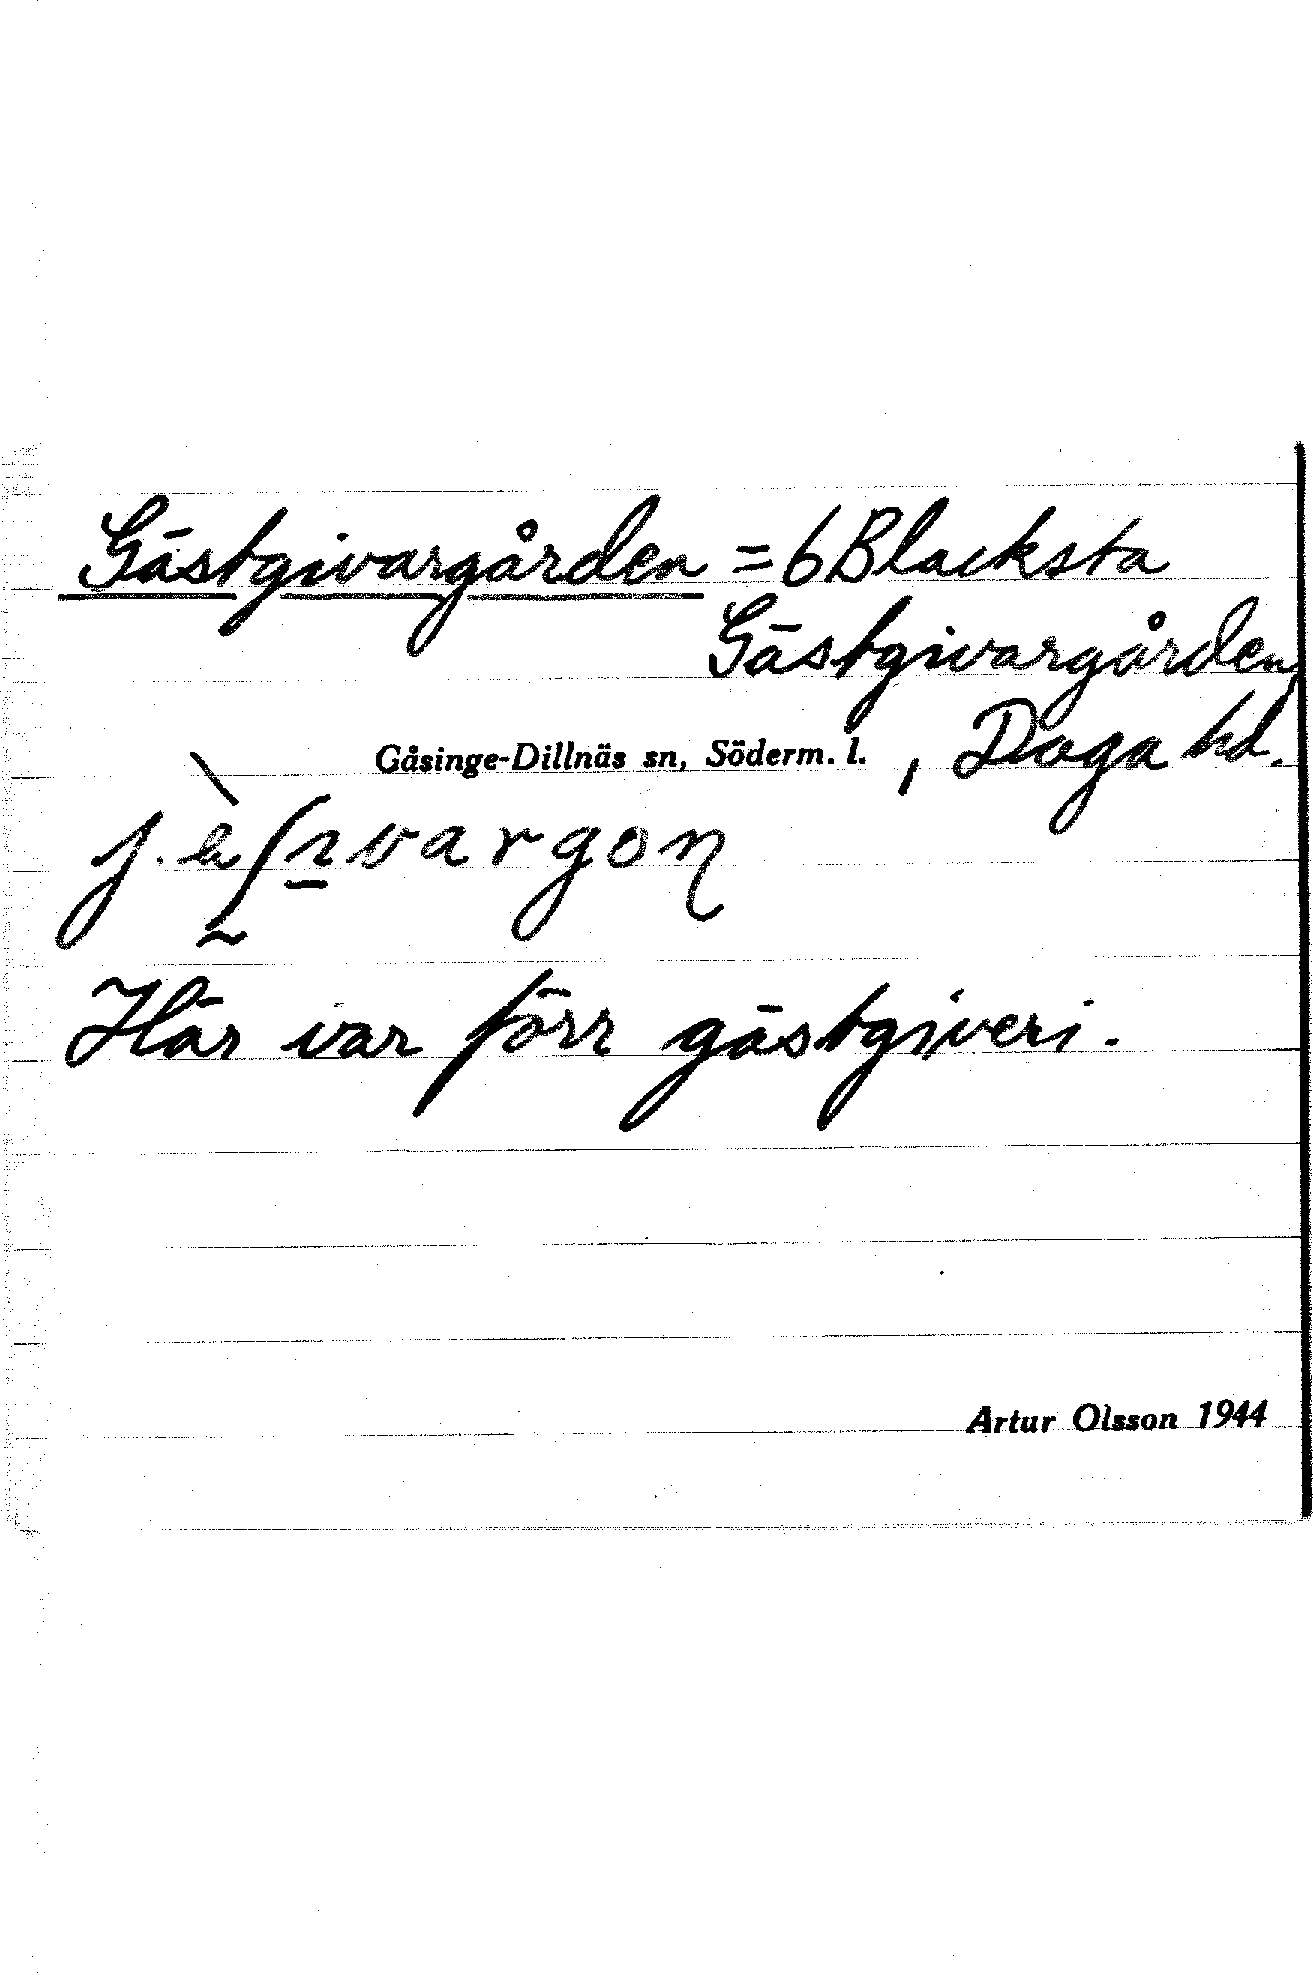 Gästgivargården = 6 Blacksta
Gästgivargården,
Gåsinge-Dillnäs sn, Söderm. l. , Daga hd.
Här var förr gästgiveri.
Artur Olsson 1944